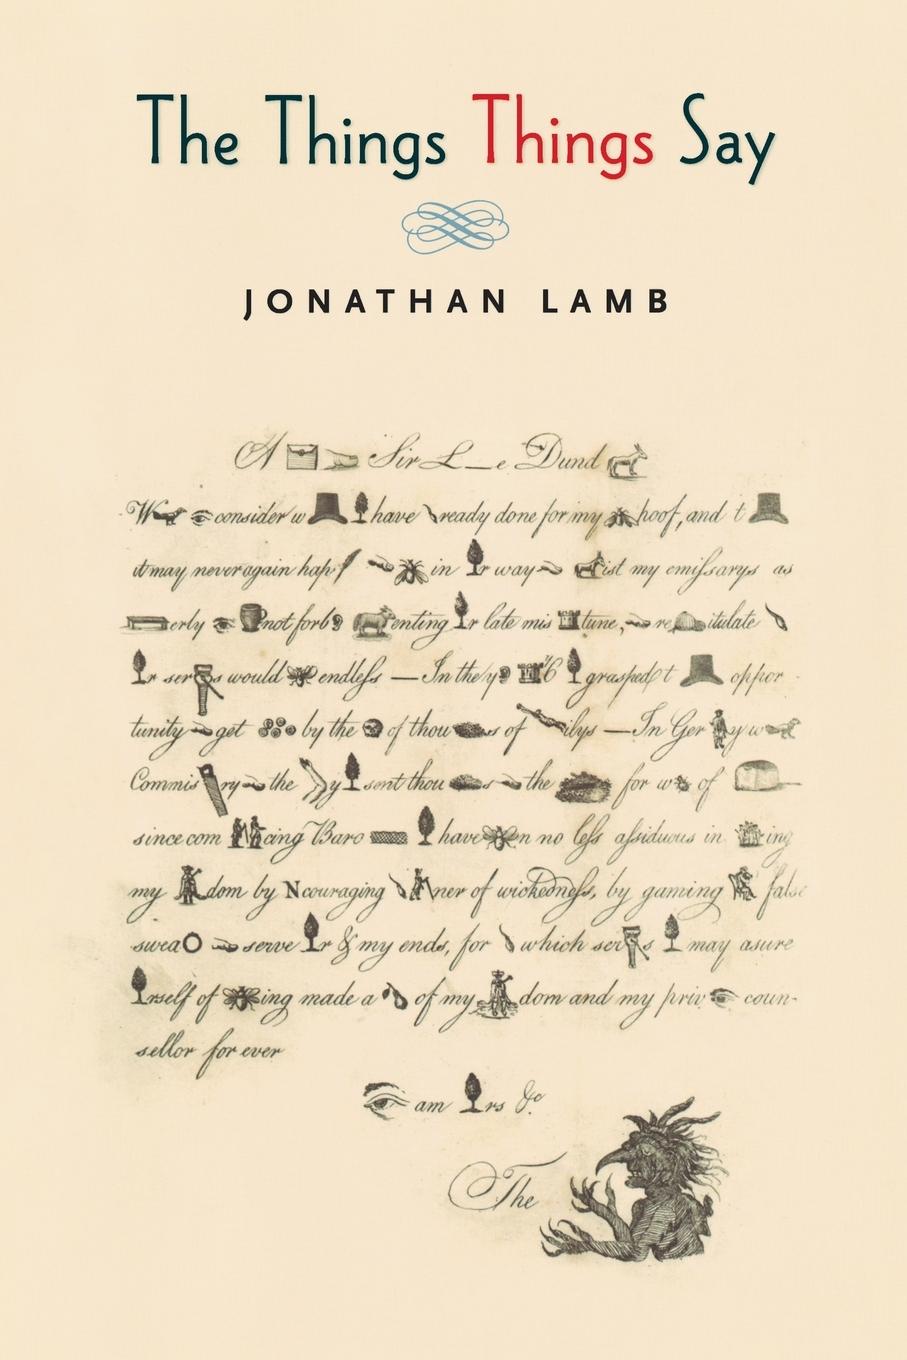 The Things Things Say
JONATHAN LAMB
A Sir L_e Dund
W consider w have ready done for my hoof, and t
it may never again hap in r way ist my emissarys as
erly not forb enting r late mis tune, re itulate
r ser s would endless — In the y '6 grasped t oppor-
tunity get by the of thou s of ilys — In Ger y w
Commis ry the y sent thou s the for w of
since com cing Baro have n no less assiduous in ing
my dom by Ncouraging ner of wickedness, by gaming false
swea serve r & my ends, for which ser s may asure
rself of ing made a of my dom and my priv coun-
sellor for ever
am rs &c
The